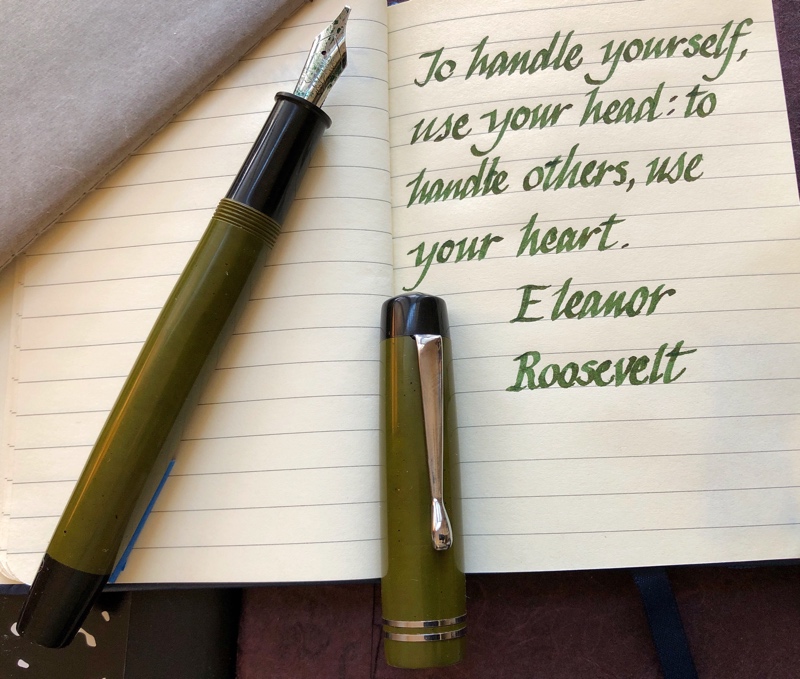 To handle yourself,
use your head: to
handle others, use
your heart.
Eleanor
Roosevelt